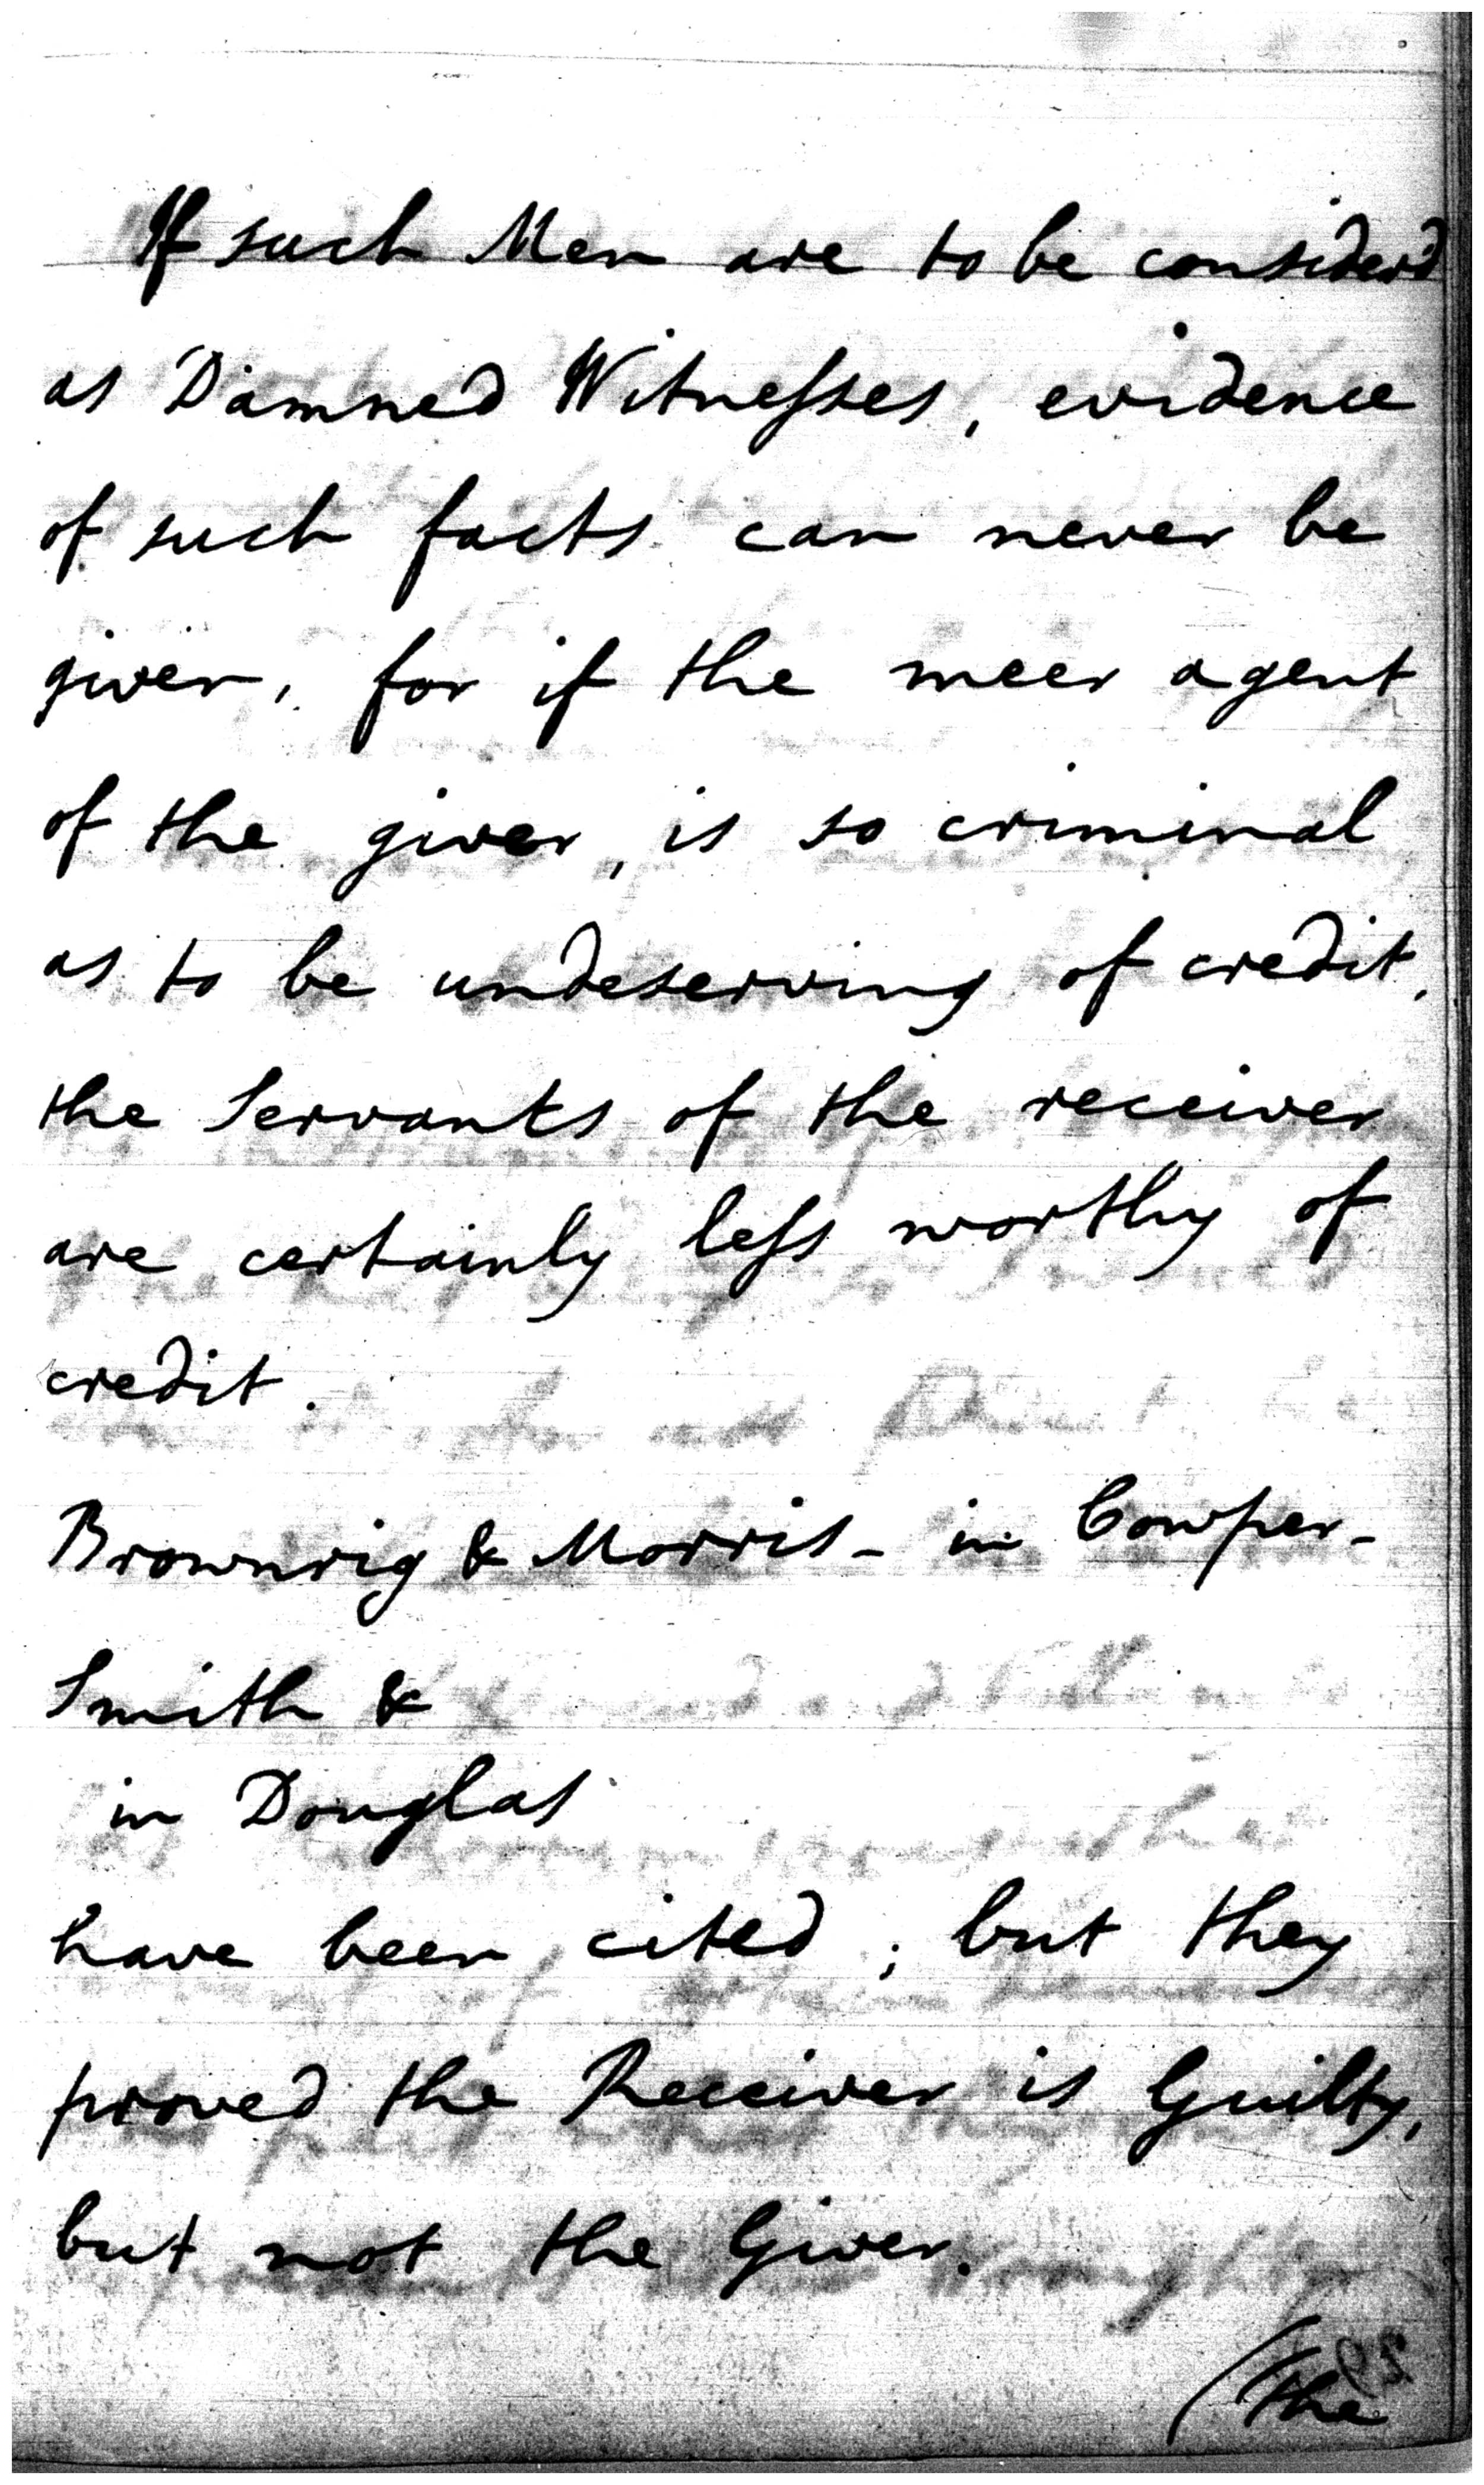 If such Men are to be considerd
as Damned Witneſses, evidence
of such facts can never be
given, for if the meer agent
of the giver, is so criminal
as to be undeserving of credit,
the Servants of the receiver
are certainly leſs worthy of
credit.
Brownrig & Morris - in Cowper -
Smith &
in Douglas
have been cited; but they
proved the Receiver is Guilty,
but not the Giver.
(the